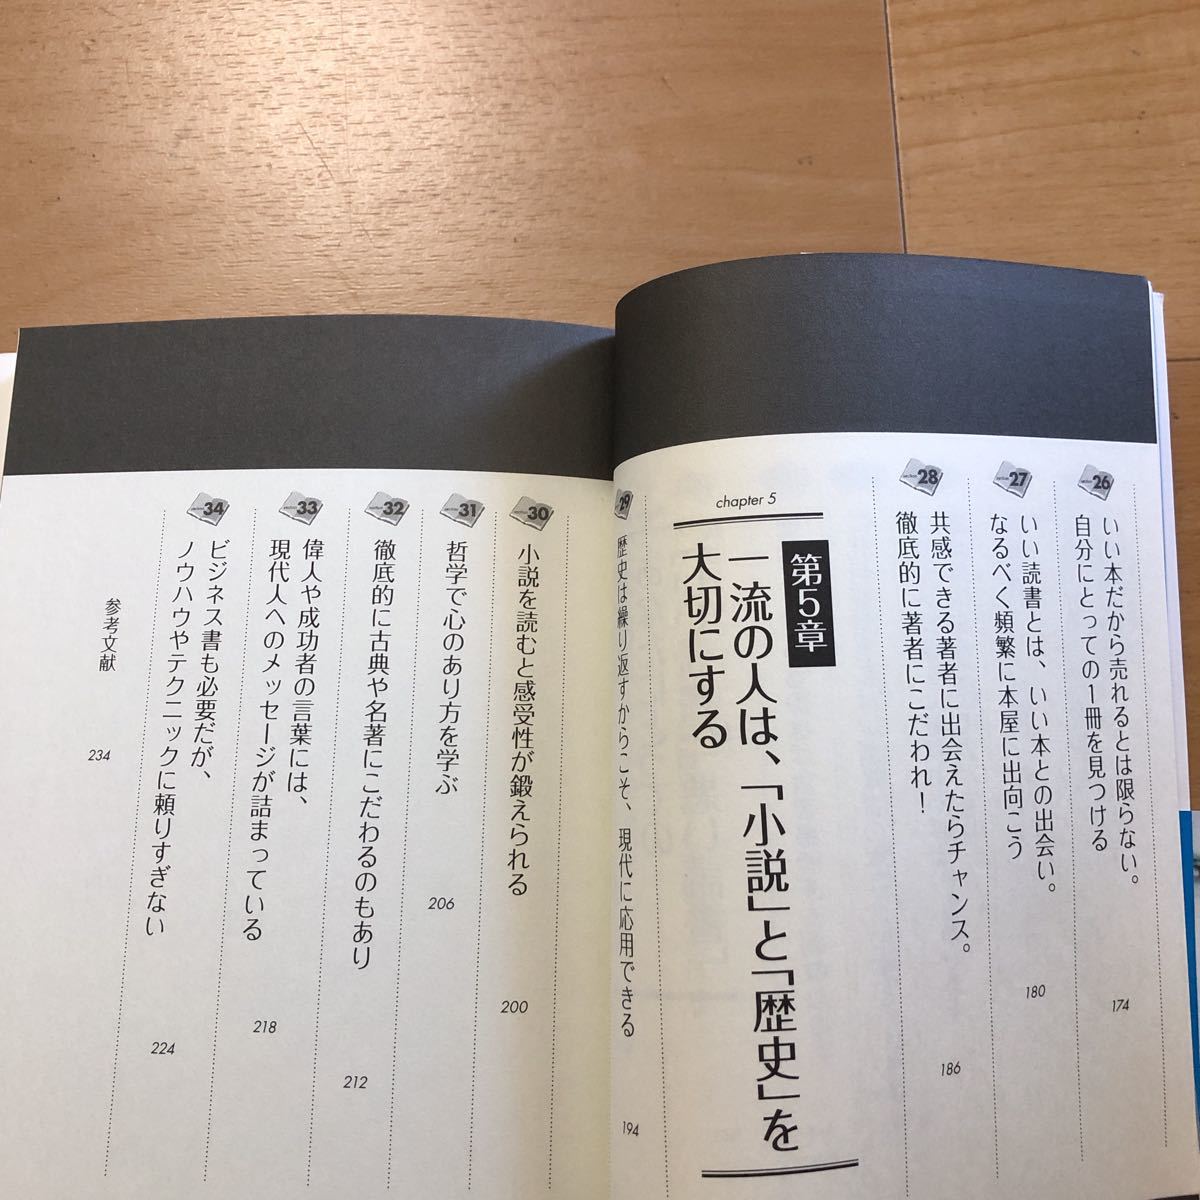 section 26
いい本だから売れるとは限らない。
自分にとっての1冊を見つける
174
section 27
いい読書とは、いい本との出会い。
なるべく頻繁に本屋に出向こう
180
section 28
共感できる著者に出会えたらチャンス。
徹底的に著者にこだわれ!
186
chapter 5
第5章
一流の人は、「小説」と「歴史」を
大切にする
29
歴史は繰り返すからこそ、現代に応用できる
194
section 30
小説を読むと感受性が鍛えられる
200
section 31
哲学で心のあり方を学ぶ
206
section 32
徹底的に古典や名著にこだわるのもあり
212
section 33
偉人や成功者の言葉には、
現代人へのメッセージが詰まっている
218
section 34
ビジネス書も必要だが、
ノウハウやテクニックに頼りすぎない
224
参考文献
234